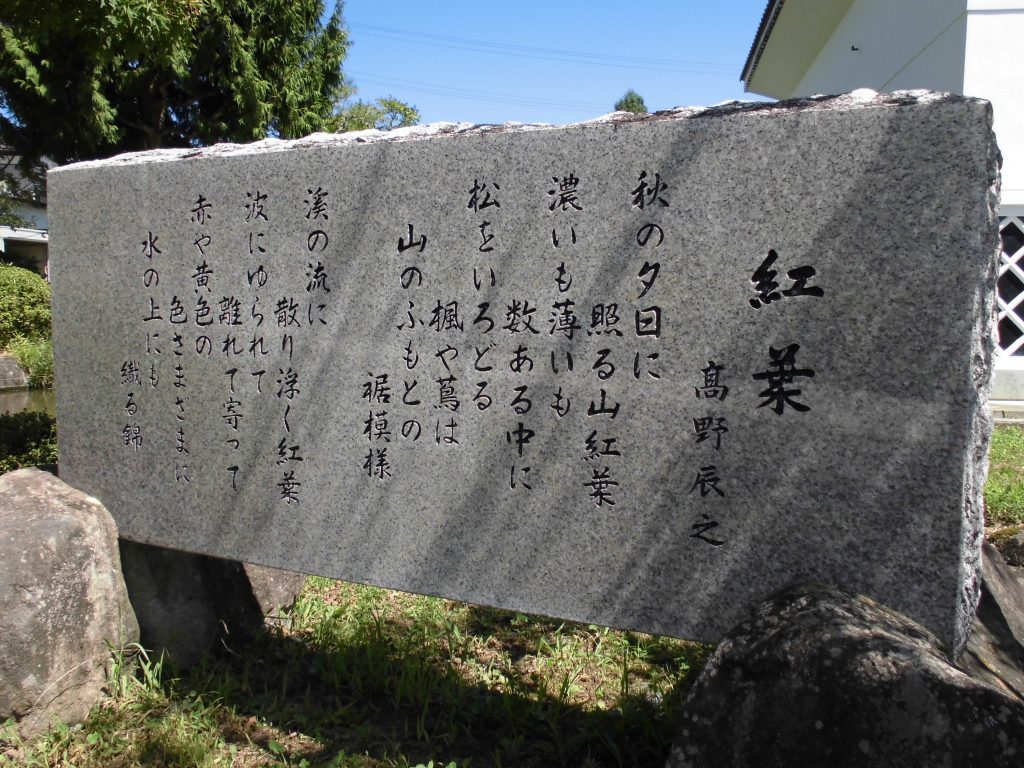 紅葉
高野辰之
秋の夕日に
照る山紅葉
濃いも薄いも
数ある中に
松をいろどる
楓や蔦は
山のふもとの
裾模様
溪の流に
散り浮く紅葉
波にゆられて
離れて寄って
赤や黄色の
色さまざまに
水の上にも
織る錦